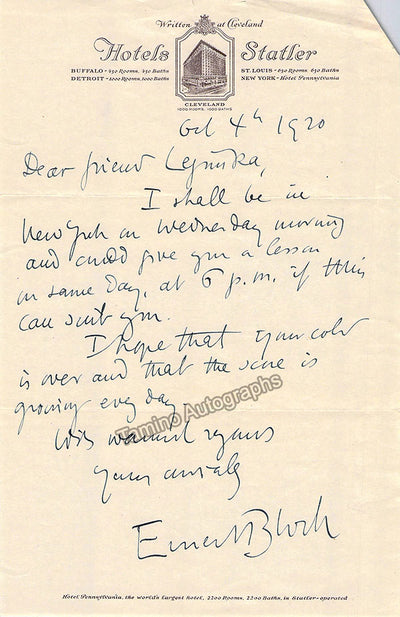 Written at Cleveland
Hotels Statler
BUFFALO - 450 Rooms, 450 Baths
DETROIT - 1000 Rooms, 1000 Baths
ST. LOUIS - 650 Rooms 650 Baths
NEW YORK - Hotel Pennsylvania
CLEVELAND
1000 ROOMS, 1000 BATHS
Oct 4th 1920
Dear friend
I shall be in
New York on Wednesday morning
and could give you a lesson
in same Day, at 6 p.m. if this
can suit you.
I hope that your cold
is over and that the score is
growing every day
With warmest regards
Yours
Ernest Bloch
Tamino Autographs
Hotel Pennsylvania, the world's largest hotel, 2200 Rooms, 2200 Baths, is Statler-operated